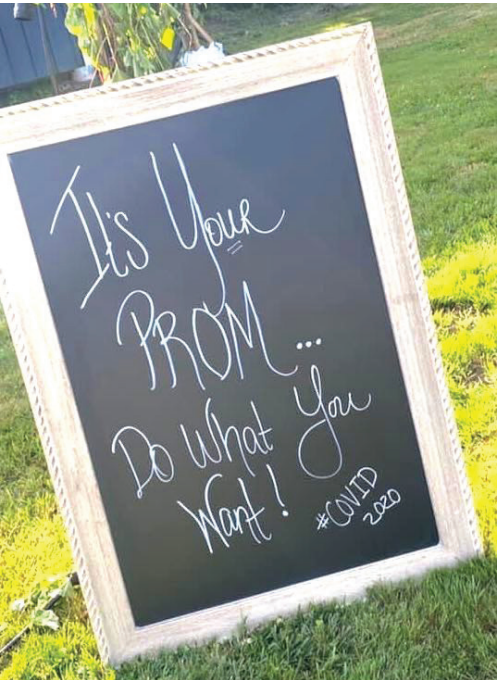 It's Your
PROM...
Do What You
Want!
#COVID
2020